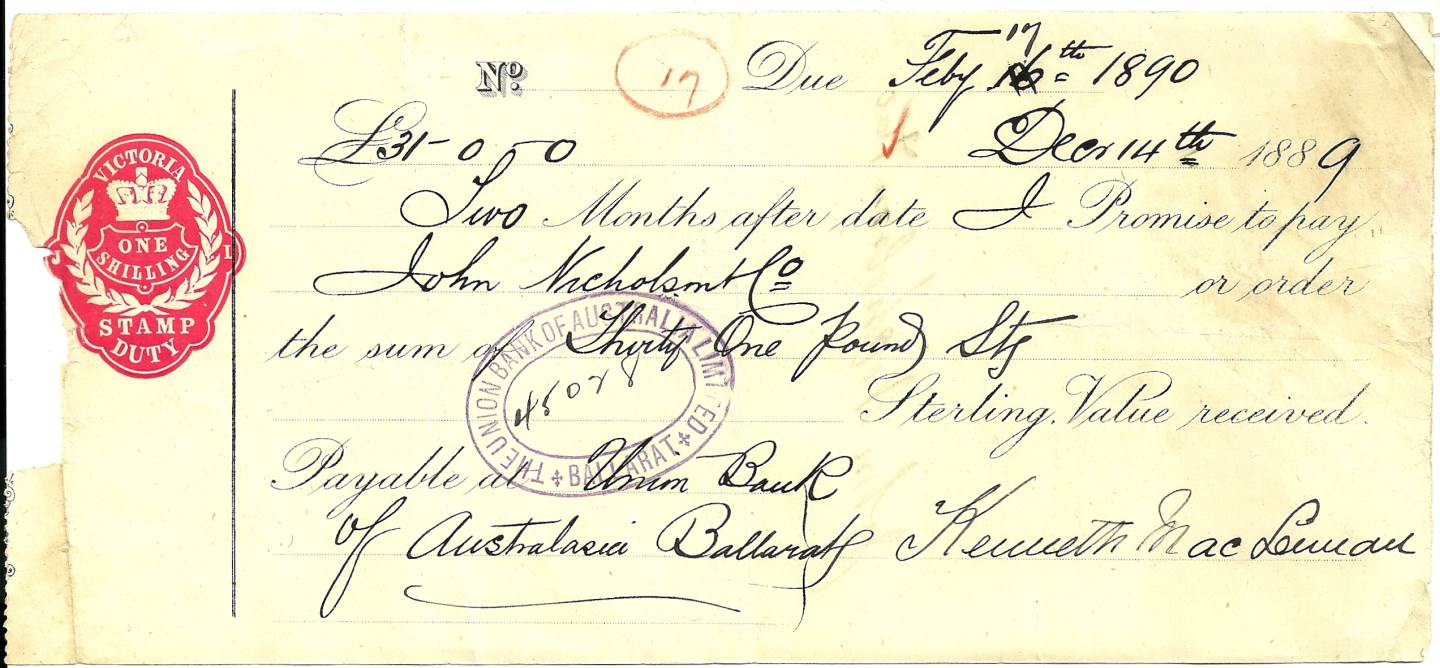 No. 17 Due Feby 17 16th 1890
£31-0-0 Decr 14th 1889
Two Months after date I Promise to pay
John Nicholson & Co or order
the sum of Thirty One Pounds Stg
Sterling. Value received.
Payable at Union Bank
of Australasia Ballarat Kenneth MacLennan
VICTORIA
ONE
SHILLING
STAMP
DUTY
THE UNION BANK OF AUSTRALIA LIMITED
BALLARAT
45028